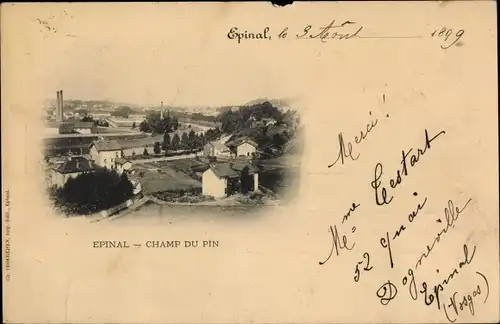 Epinal, le 3 Août 1899
Merci !
Mme Testart
52 quai
Dogneville
Epinal
(Vosges)
EPINAL — CHAMP DU PIN